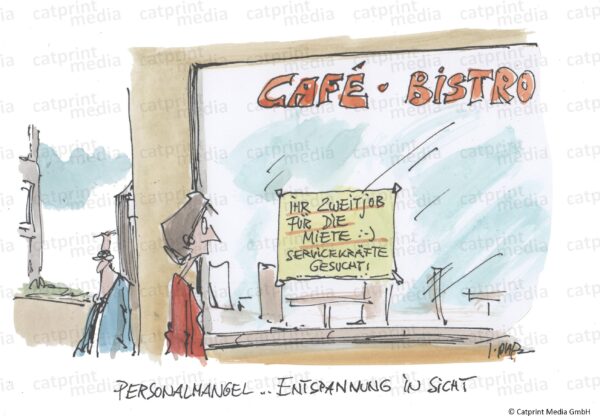 CAFÉ · BISTRO
IHR ZWEITJOB
FÜR DIE
MIETE :-)
SERVICEKRÄFTE
GESUCHT!
PERSONALMANGEL .. ENTSPANNUNG IN SICHT
catprint media
© Catprint Media GmbH